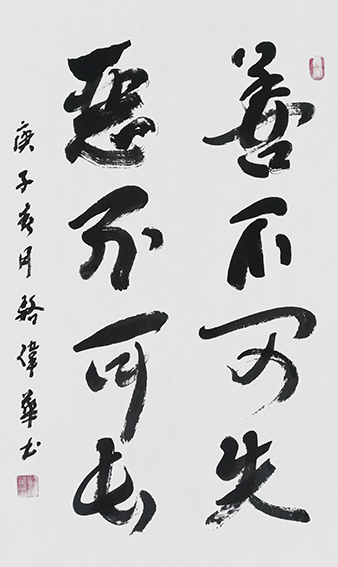 善不可失
惡不可長
庚子春月 駱偉華書